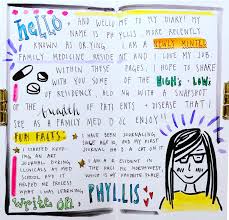 hello AND WELCOME TO MY DIARY! MY
NAME IS PHYLLIS, MORE RECENTLY
KNOWN AS DR. YING. I AM A NEWLY MINTED
FAMILY MEDICINE RESIDENT AND I LOVE MY JOB.
WITHIN THESE PAGES, I HOPE TO SHARE
WITH YOU SOME OF THE HIGHS + LOWS
OF RESIDENCY ALONG WITH A SNAPSHOT
OF THE breadth OF PATIENTS + DISEASE THAT I
SEE AS A FAMILY MED DOC. ENJOY!
FUN FACTS:
I STARTED KEEP-
ING AN ART
JOURNAL DURING
CLINICALS AS MED
SCHOOL AND IT
HELPED ME PROCESS
WHAT I WAS LEARNING
I HAVE BEEN JOURNALING
SINCE AGE AND MY FIRST
JOURNAL HAD A CAT ON IT
I AM A RESIDENT IN
THE NORTHWEST
write on,
PHYLLIS